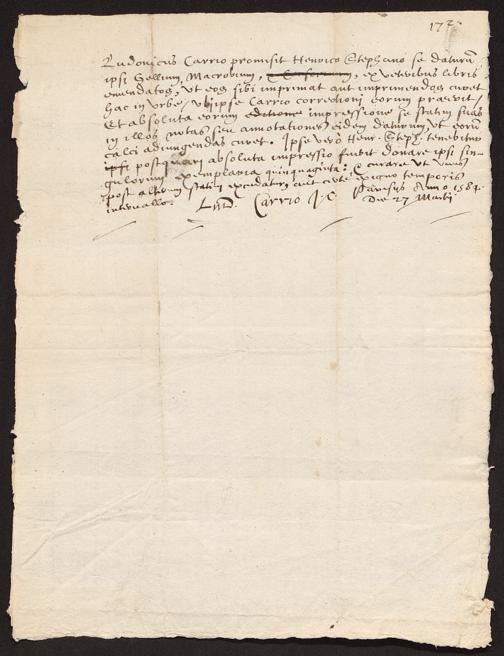 172
Ludovicus Carrio promisit Henrico Stephano se daturum
ipsi Gellium, Macrobium, & Censorinum, ex veteribus libris
emendatos, ut eos sibi imprimat aut imprimendos curet
hac in urbe, ubi ipse Carrio correctioni eorum praeerit,
Et absoluta eorum Editione impressione se statim suas
in illos notas seu annotationes eidem daturum, ut eorum
calci adiungendas curet. Ipse vero Henr. Steph. tenebitur
ipsi postquam absoluta impressio fuerit donare ipsi sin-
gulorum exemplaria quinquaginta: & curare ut unus
post alterum statim excudatur, aut certe exiguo temporis
intervallo. Lud. Carrio JC Parisiis Anno 1584.
Die 27 Martii